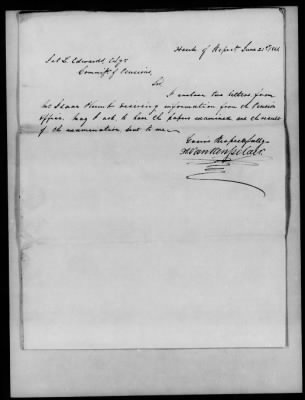 House of Repvt June 21st 1841
J. L. Edwards, Esqr
Commissr of Pensions,
Sir
I enclose two letters from
Mr Isaac desiring information from the Pension
Office. May I ask to have the papers examined and the result
of the examination sent to me
Yours Respectfully
H Van Rensselaer